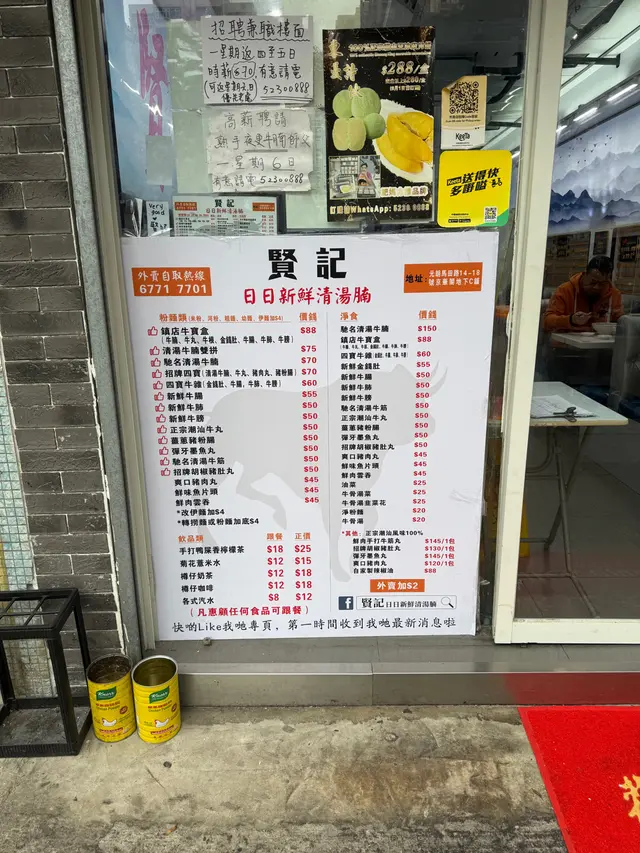 招聘兼職樓面
一星期返四至五日
時薪$70有意請電
52300888
高薪聘請
一星期6日
有意請電52300888
$288/
Keeta
Keeta 送得快
多啲嗌
訂購WhatsApp: 5230 0088
Very good
賢記
日日新鮮清湯腩
外賣自取熱線
6771 7701
賢記
日日新鮮清湯腩
地址:
元朗馬田路14-18
號京華閣地下C舖
粉麵類(米粉、河粉、粗麵、幼麵、伊麵加$4) 價錢
鎮店牛寶盒 $88
清湯牛腩雙拼 $75
馳名清湯牛腩 $70
招牌四寶(清湯牛腩、牛丸、豬肉丸、豬粉腸) $70
四寶牛雜(金錢肚、牛腸、牛肺、牛膀) $60
新鮮牛腸 $55
新鮮牛肺 $50
新鮮牛膀 $50
正宗潮汕牛丸 $50
薑蔥豬粉腸 $50
彈牙墨魚丸 $50
馳名清湯牛筋 $50
招牌胡椒豬肚丸 $50
爽口豬肉丸 $45
鮮味魚片頭 $45
鮮肉雲吞 $45
*改伊麵加$4
*轉撈麵或粉麵加底$4
飲品類 跟餐 正價
手打鴨屎香檸檬茶 $18 $25
菊花薏米水 $12 $15
樽仔奶茶 $12 $18
樽仔咖啡 $12 $18
各式汽水 $8 $12
(凡惠顧任何食品可跟餐)
淨食 價錢
馳名清湯牛腩 $150
鎮店牛寶盒 $88
四寶牛雜 $60
新鮮金錢肚 $55
新鮮牛腸 $50
新鮮牛肺 $50
新鮮牛膀 $50
馳名清湯牛筋 $50
正宗潮汕牛丸 $50
薑蔥豬粉腸 $50
彈牙墨魚丸 $50
招牌胡椒豬肚丸 $50
爽口豬肉丸 $45
鮮味魚片頭 $45
鮮肉雲吞 $45
油菜 $25
牛骨湯菜 $25
牛骨湯韭菜花 $25
淨粉麵 $20
牛骨湯 $20
*其他: 正宗潮汕風味100%
鮮肉手打牛筋丸 $145/1包
招牌胡椒豬肚丸 $130/1包
彈牙墨魚丸 $145/1包
爽口豬肉丸 $120/1包
自家製辣椒油 $88
外賣加$2
f 賢記日日新鮮清湯腩
快啲Like我哋專頁,第一時間收到我哋最新消息啦
Knorr
Knorr